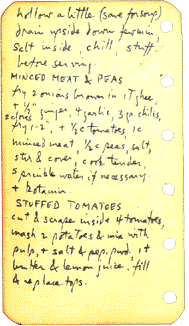 hollow a little (save for soup)
drain upside down few min,
salt inside, chill, stuff
before serving.
MINCED MEAT & PEAS
fry 2 onions brown in 1T ghee,
+ ½" ginger, 4 garlic, 3 gr. chilis,
2 cloves
fry 1-2, + ½ c tomatoes, 1c
minced meat, ½ c peas, salt,
stir & cover, cook tender,
sprinkle water if necessary.
+ kotamir.
STUFFED TOMATOES
cut & scrape inside 4 tomatoes,
mash 2 potatoes & mix with
pulp, + salt & pep. pwd. 1t
butter & lemon juice, fill
& replace tops.